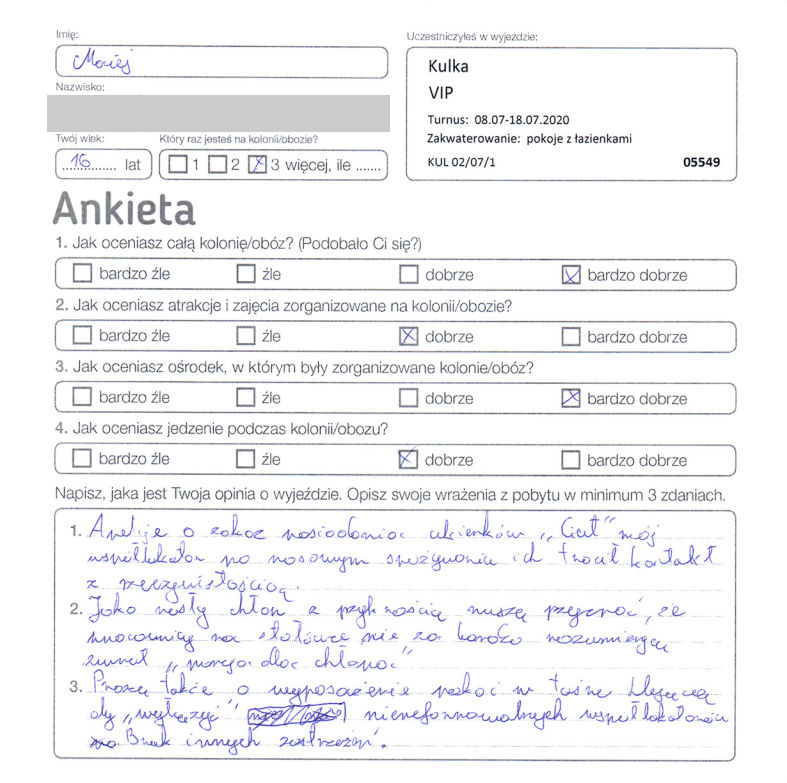 Imię:
Maciej
Uczestniczyłeś w wyjeździe:
Kulka
VIP
Turnus: 08.07-18.07.2020
Zakwaterowanie: pokoje z łazienkami
KUL 02/07/1 05549
Nazwisko:
Twój wiek:
Który raz jesteś na kolonii/obozie?
16 lat
1 2 3 więcej, ile .......
Ankieta
1. Jak oceniasz całą kolonię/obóz? (Podobało Ci się?)
bardzo źle źle dobrze bardzo dobrze
2. Jak oceniasz atrakcje i zajęcia zorganizowane na kolonii/obozie?
bardzo źle źle dobrze bardzo dobrze
3. Jak oceniasz ośrodek, w którym były zorganizowane kolonie/obóz?
bardzo źle źle dobrze bardzo dobrze
4. Jak oceniasz jedzenie podczas kolonii/obozu?
bardzo źle źle dobrze bardzo dobrze
Napisz, jaka jest Twoja opinia o wyjeździe. Opisz swoje wrażenia z pobytu w minimum 3 zdaniach.
1. Apeluje o zakaz posiadania cukierków „ mój
współlokator po masowym spożywaniu ich tracił kontakt
z rzeczywistością.
2. Jako rosły chłop z przykrością muszę przyznać, że
pracownicy na stołówce nie za bardzo rozumieją
zwrot „porcja dla chłopa"
3. Proszę także o wyposażenie pokoi w taśnę klejącą
by niereformowalnych współlokatorów
Brak innych zastrzeżeń.